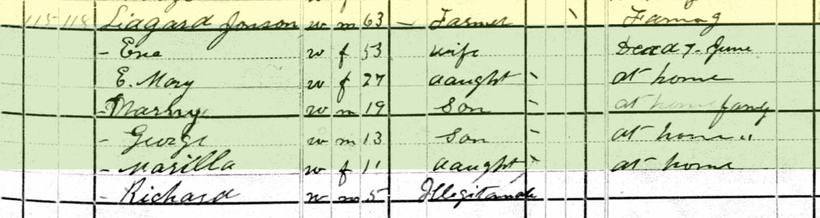 115 118 Liagard Jonson w m 63 Farmer Famag
- Eve w f 53 wife Dead 7. June
- E. Mary w f 27 daught at home
- Harry w m 19 son at home
- George w m 13 son at home "
- Marilla w f 11 daught at home
- Richard w m 5 Illegitamate